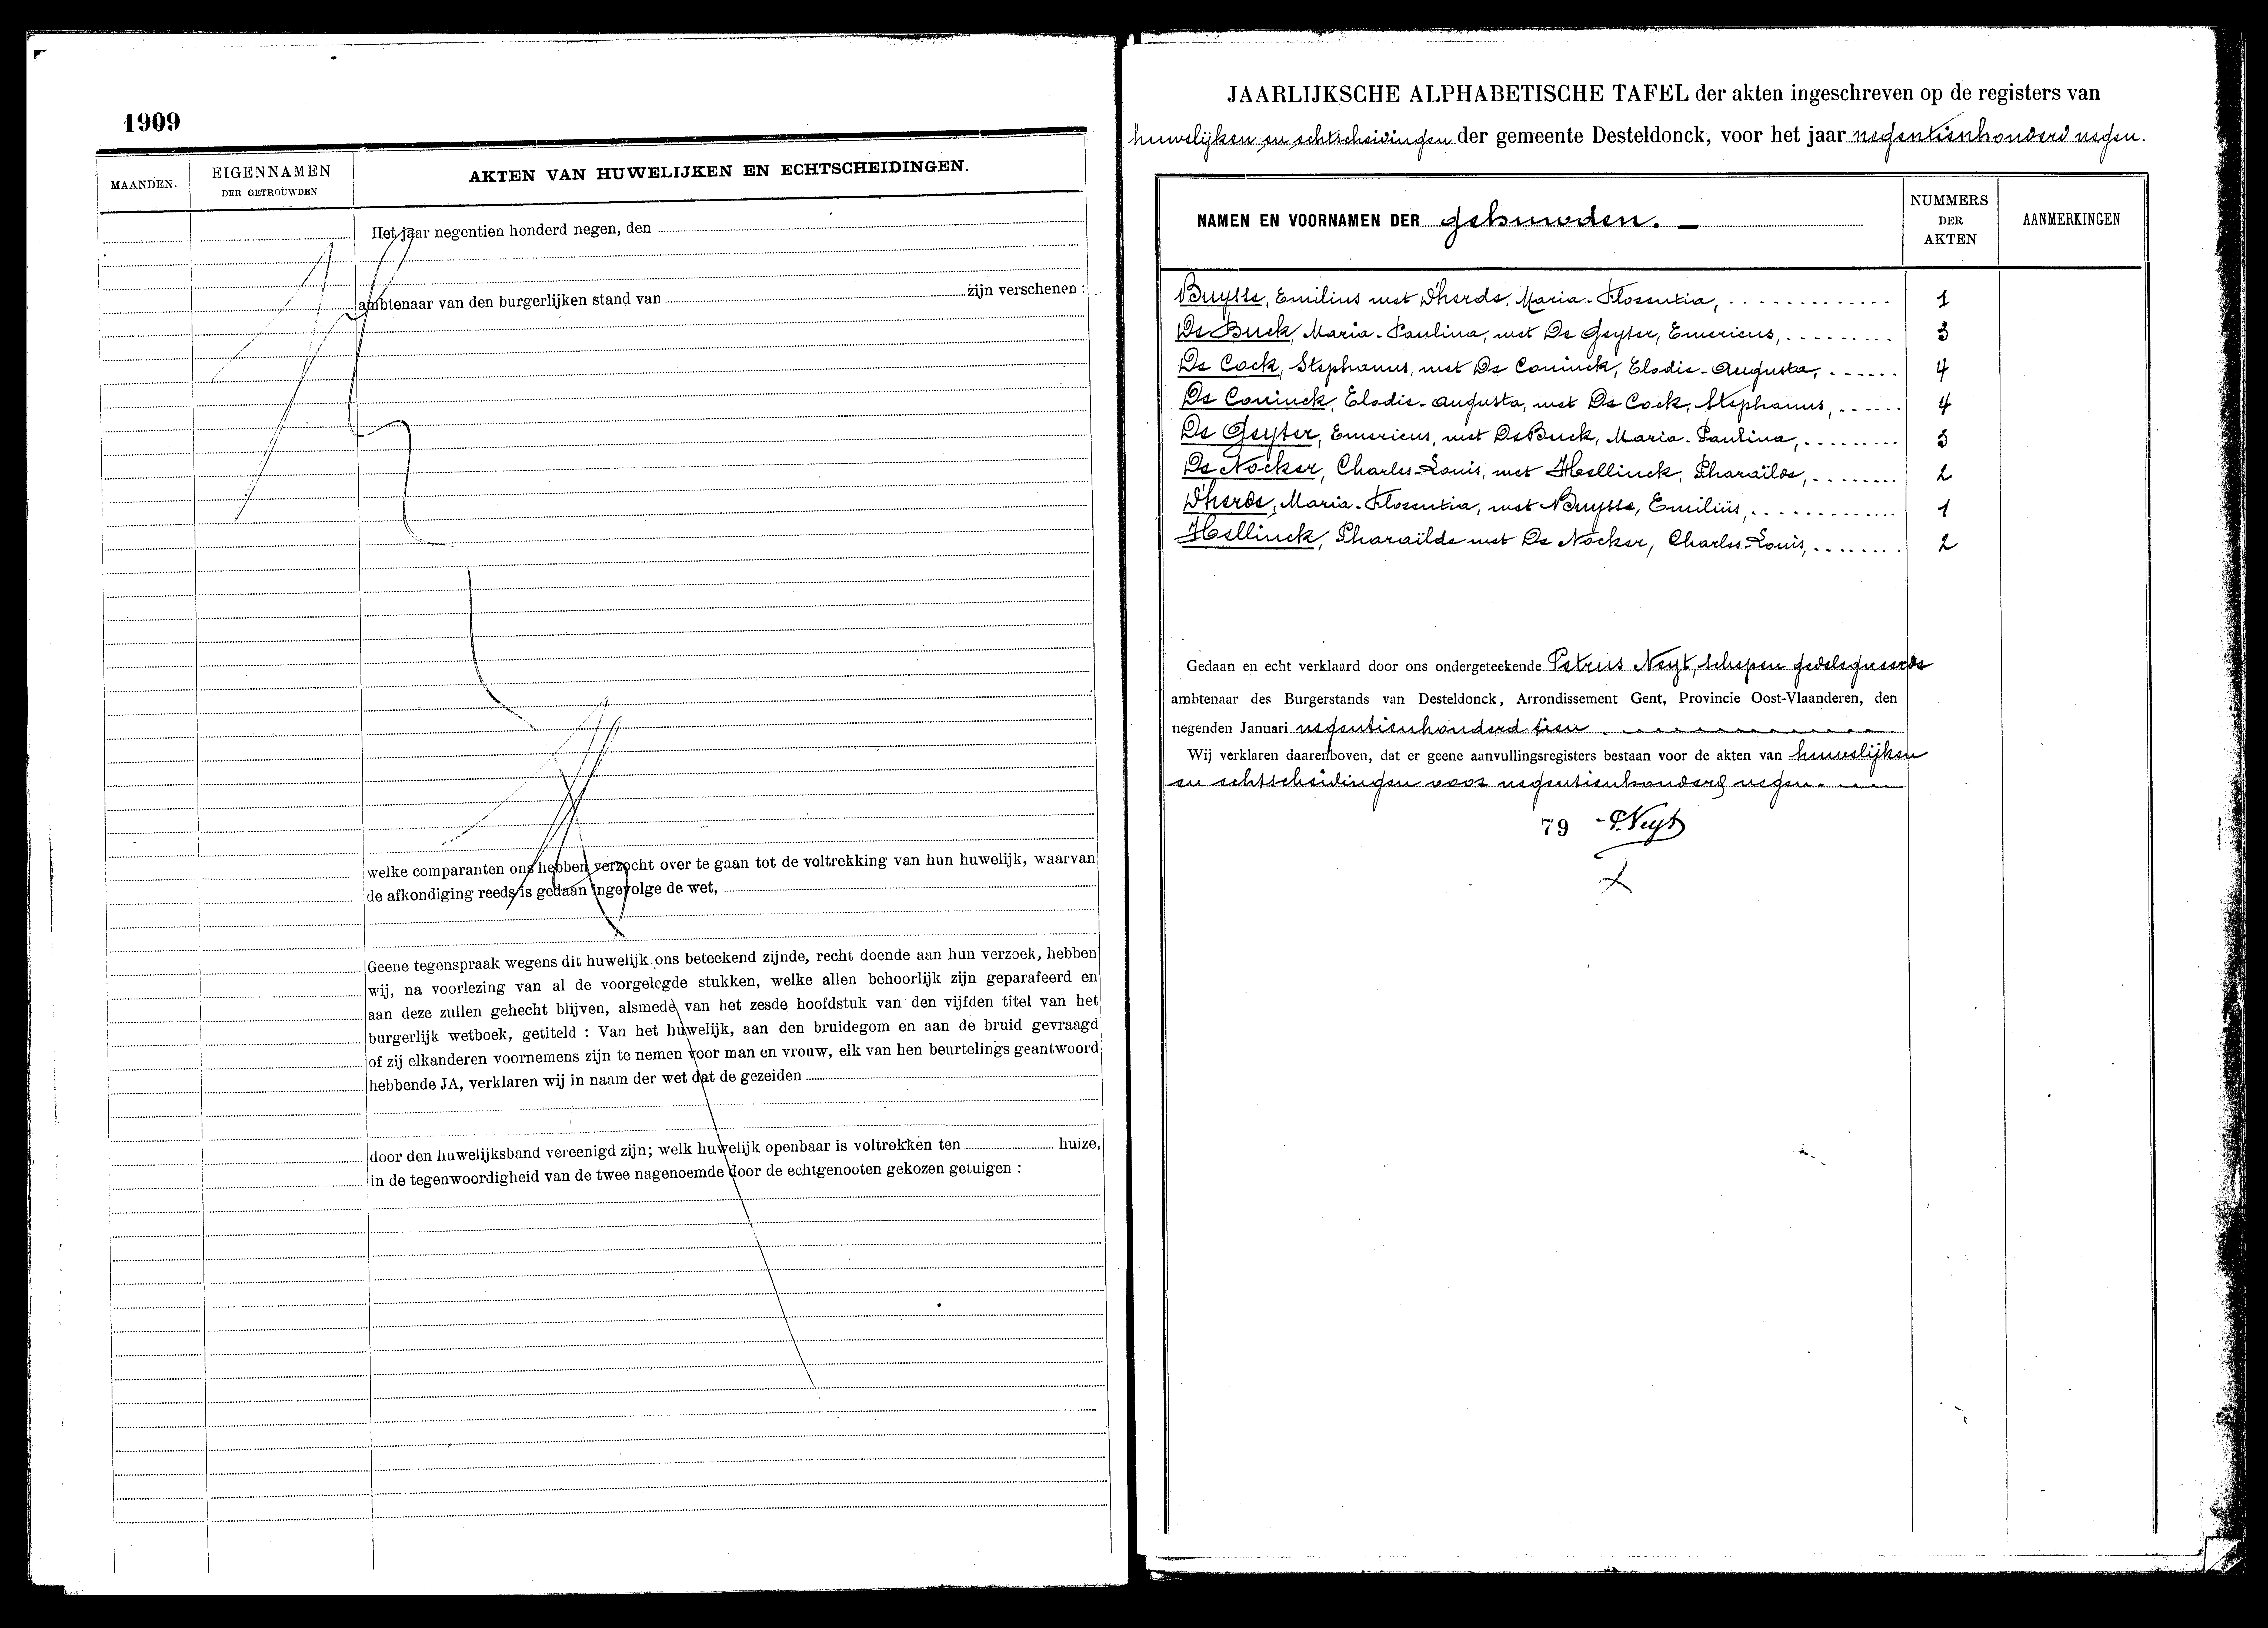 1909
MAANDEN.
EIGENNAMEN
DER GETROUWDEN
AKTEN VAN HUWELIJKEN EN ECHTSCHEIDINGEN.
Het jaar negentien honderd negen, den
ambtenaar van den burgerlijken stand van zijn verschenen :
welke comparanten ons hebben verzocht over te gaan tot de voltrekking van hun huwelijk, waarvan
de afkondiging reeds is gedaan ingevolge de wet,
Geene tegenspraak wegens dit huwelijk ons beteekend zijnde, recht doende aan hun verzoek, hebben
wij, na voorlezing van al de voorgelegde stukken, welke allen behoorlijk zijn geparafeerd en
aan deze zullen gehecht blijven, alsmede van het zesde hoofdstuk van den vijfden titel van het
burgerlijk wetboek, getiteld : Van het huwelijk, aan den bruidegom en aan de bruid gevraagd
of zij elkanderen voornemens zijn te nemen voor man en vrouw, elk van hen beurtelings geantwoord
hebbende JA, verklaren wij in naam der wet dat de gezeiden
door den huwelijksband vereenigd zijn; welk huwelijk openbaar is voltrokken ten huize,
in de tegenwoordigheid van de twee nagenoemde door de echtgenooten gekozen getuigen :
JAARLIJKSCHE ALPHABETISCHE TAFEL der akten ingeschreven op de registers van
huwelijken en echtscheidingen der gemeente Desteldonck, voor het jaar negentienhonderd negen.
NAMEN EN VOORNAMEN DER gehuwden. -
NUMMERS
DER
AKTEN
AANMERKINGEN
Buysse, Emilius met D'herde, Maria-Florentia, 1
De Buck, Maria-Paulina, met De Geyter, Emericus, 3
De Cock, Stephanus, met De Coninck, Elodie-Augusta, 4
De Coninck, Elodie-Augusta, met De Cock, Stephanus, 4
De Geyter, Emericus, met De Buck, Maria-Paulina, 3
De Nocker, Charles-Louis, met Hellinck, Pharaïlde, 2
D'herde, Maria-Florentia, met Buysse, Emiliüs, 1
Hellinck, Pharaïlde met De Nocker, Charles-Louis, 2
Gedaan en echt verklaard door ons ondergeteekende Petrus Neyt, schepen gedelegueerde
ambtenaar des Burgerstands van Desteldonck, Arrondissement Gent, Provincie Oost-Vlaanderen, den
negenden Januari negentienhonderd tien.
Wij verklaren daarenboven, dat er geene aanvullingsregisters bestaan voor de akten van huwelijken
en echtscheidingen voor negentienhonderd negen.
79 P. Neyt